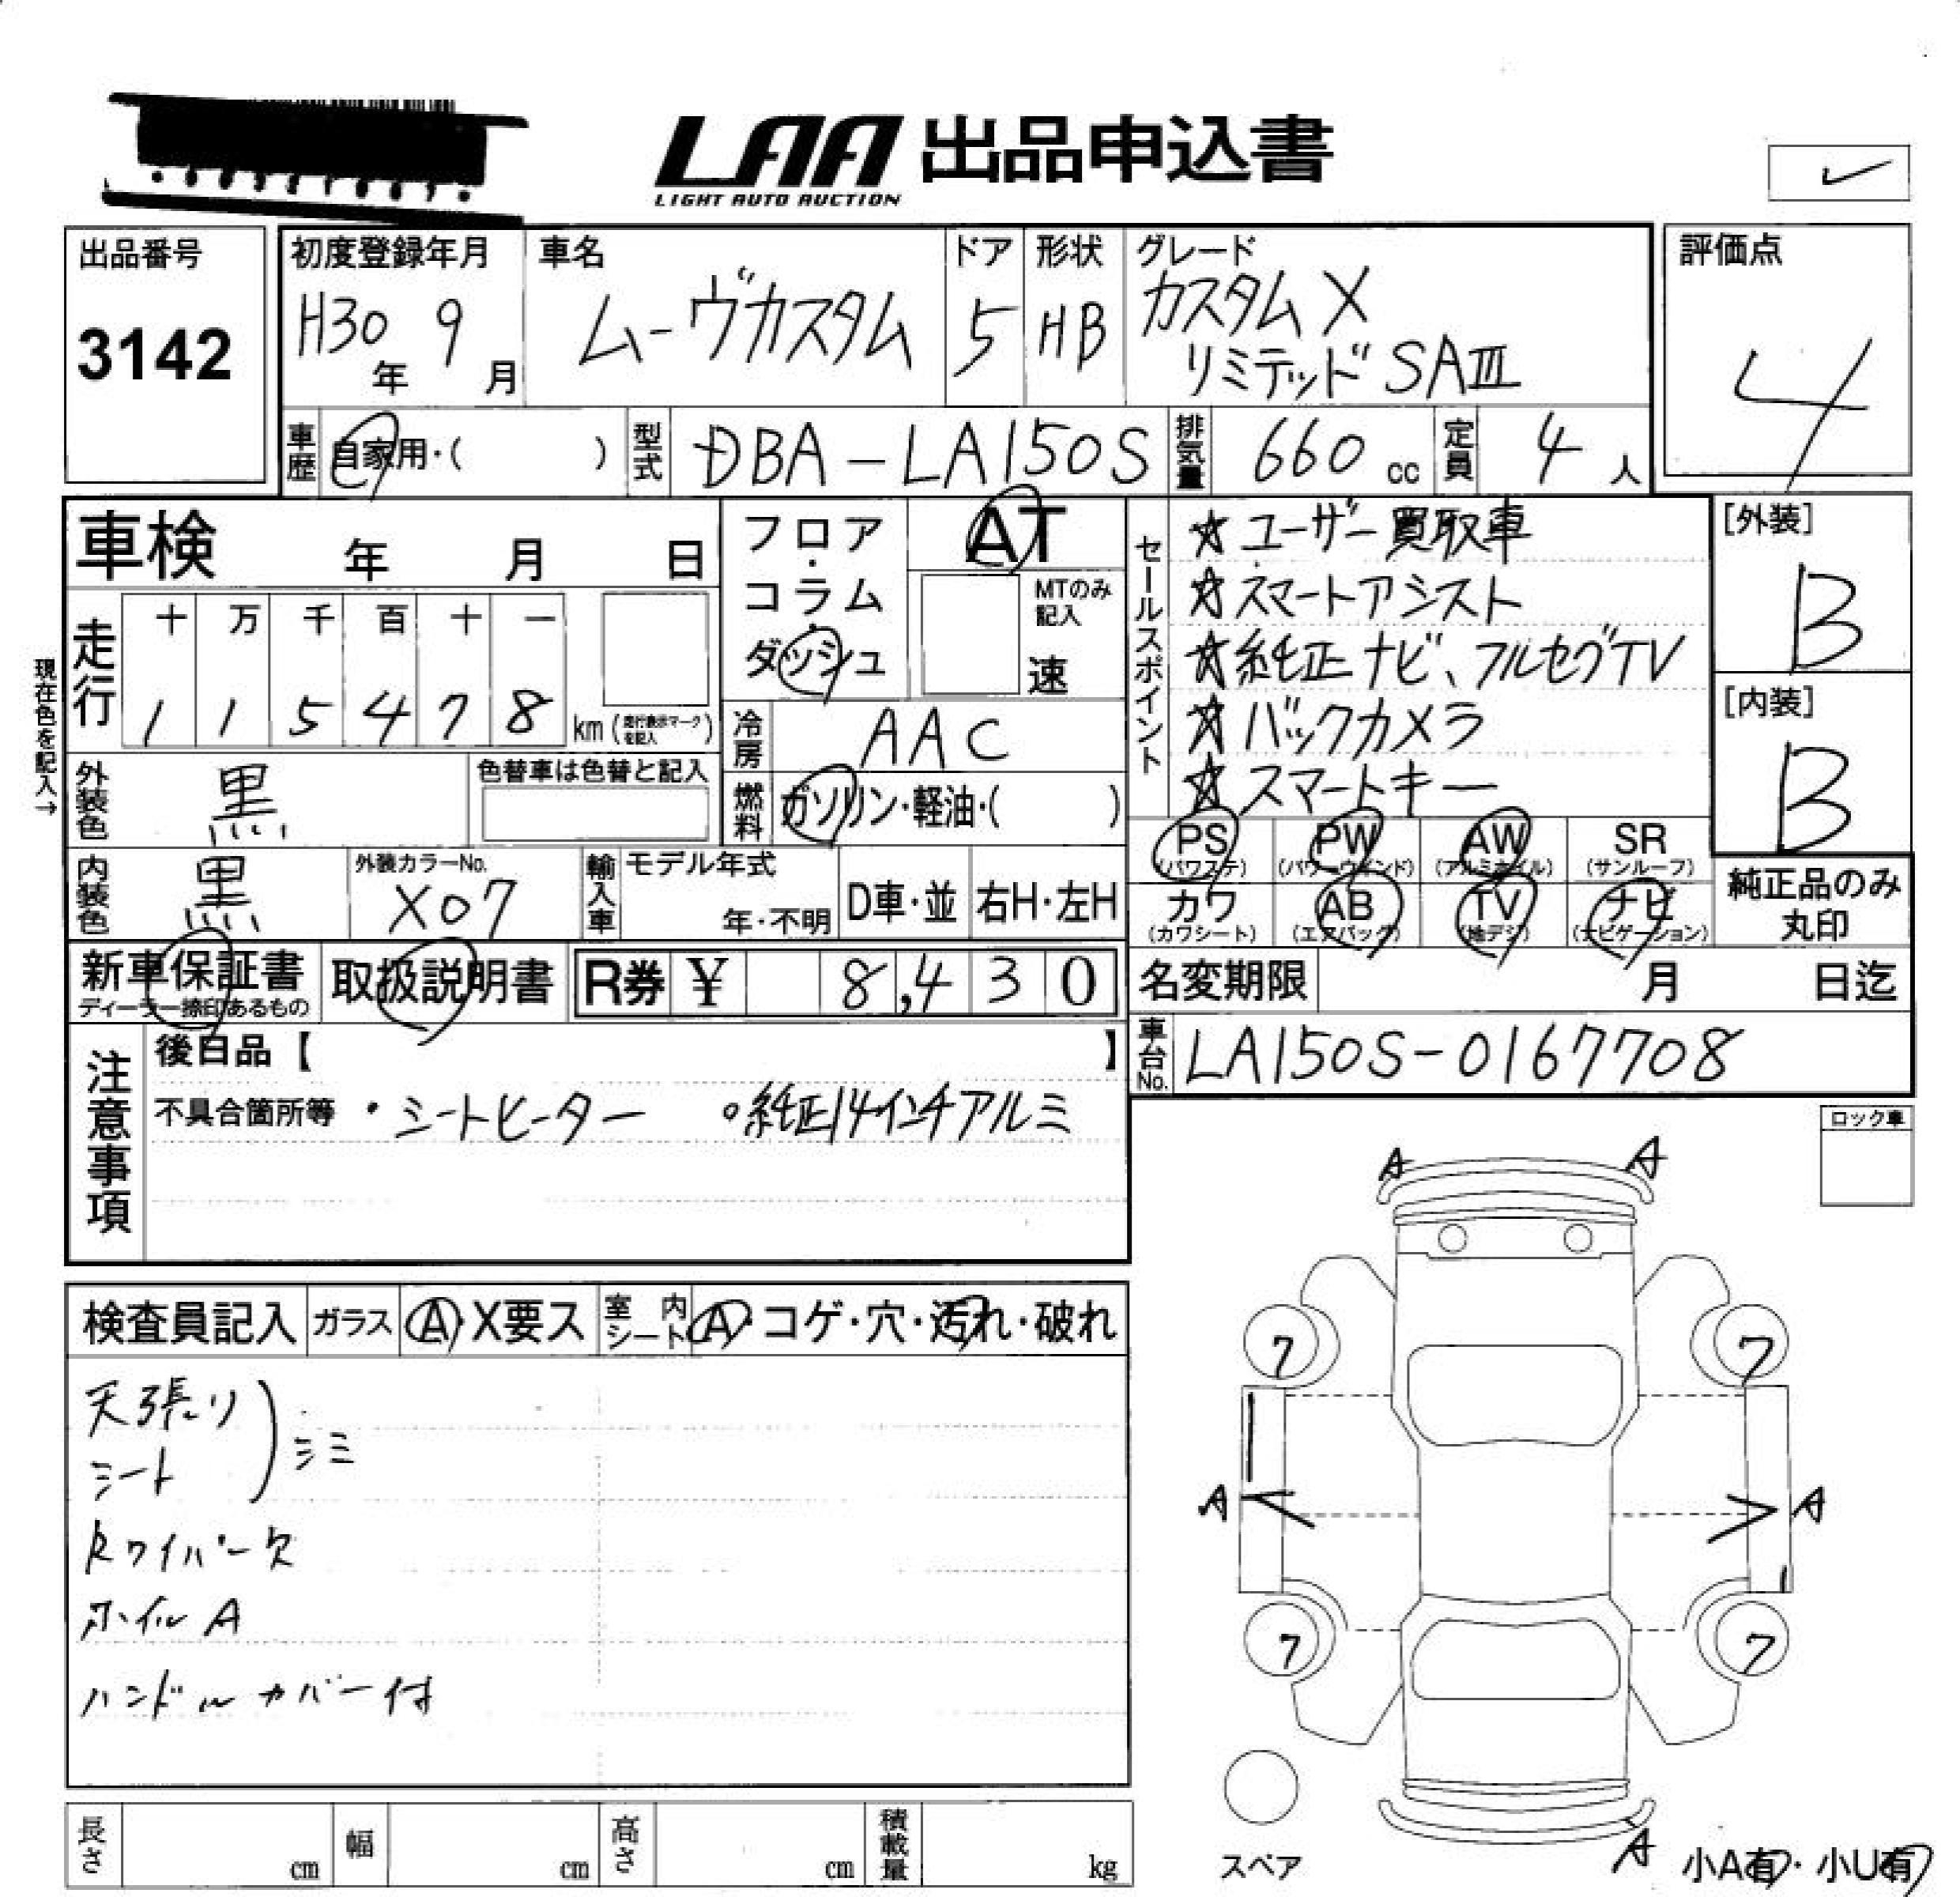 LAA 出品申込書
LIGHT AUTO AUCTION
✓
出品番号
3142
初度登録年月
H30年 9月
車名
ムーヴカスタム
ドア
5
形状
HB
グレード
カスタムX
リミテッド SAⅢ
評価点
4
車歴 自家用・( )
型式 DBA-LA150S
排気量 660 cc
定員 4 人
車検 年 月 日
フロア・コラム・ダッシュ
AT
MTのみ記入
速
現在色を記入→
走行 十 万 千 百 十 一
1 1 5 4 7 8 km (走行表示マークを記入)
冷房 AAC
燃料 ガソリン・軽油・( )
外装色 黒
色替車は色替と記入
内装色 黒
外装カラーNo.
X07
輸入車 モデル年式
年・不明
D車・並 右H・左H
セールスポイント
☆ユーザー買取車
☆スマートアシスト
☆純正ナビ、フルセグTV
☆バックカメラ
☆スマートキー
[外装]
B
[内装]
B
PS (パワステ) PW (パワーウインド) AW (アルミホイル) SR (サンルーフ)
カワ (カワシート) AB (エアバッグ) TV (地デジ) ナビ (ナビゲーション)
純正品のみ丸印
新車保証書
ディーラー捺印あるもの
取扱説明書
R券 ¥ 8,430
名変期限 月 日迄
車台No. LA150S-0167708
注意事項
後日品【 】
不具合箇所等 ・シートヒーター ○純正14インチアルミ
ロック車
検査員記入 ガラス A・X要ス 室内シート A・コゲ・穴・汚れ・破れ
天張り
シート
) シミ
Rワイパー欠
ホイルA
ハンドルカバー付
A A
7 7
A A
7 7
スペア
A
小A有・小U有
長さ cm 幅 cm 高さ cm 積載量 kg